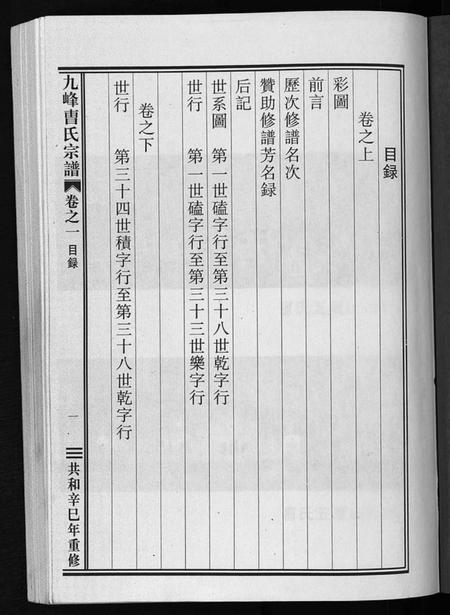 目録
卷之上
彩圖
前言
歷次修譜名次
贊助修譜芳名録
后記
世系圖　第一世磕字行至第三十八世乾字行
世行　第一世磕字行至第三十三世樂字行
卷之下
世行　第三十四世積字行至第三十八世乾字行
九峰曹氏宗譜　卷之一　目録　一　共和辛巳年重修